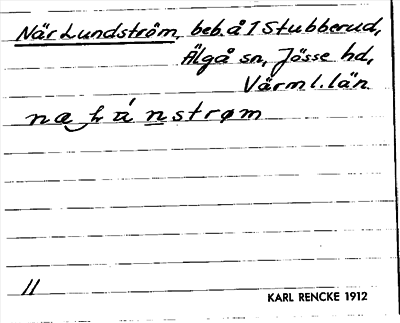 När Lundström, beb. å 1 Stubberud,
Älgå sn, Jösse hd,
Värml. län
11
KARL RENCKE 1912